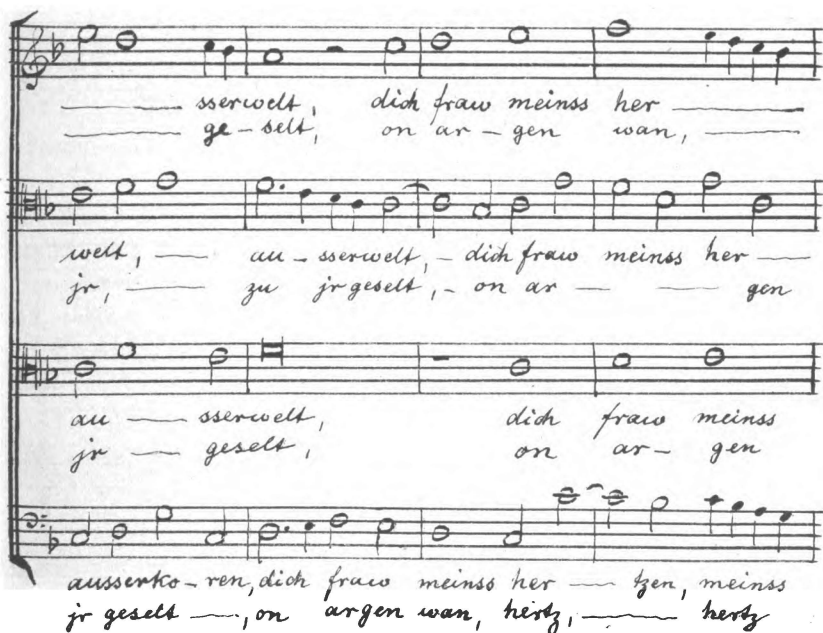 sserwelt, dich fraw meinss her
ge-selt, on ar-gen wan,
welt, au-sserwelt,-dich fraw meinss her
jr, zu jr geselt,-on ar gen
au sserwelt, dich fraw meinss
jr geselt, on ar-gen
ausserko-ren, dich fraw meinss her tzen, meinss
jr geselt, on argen wan, hertz, hertz